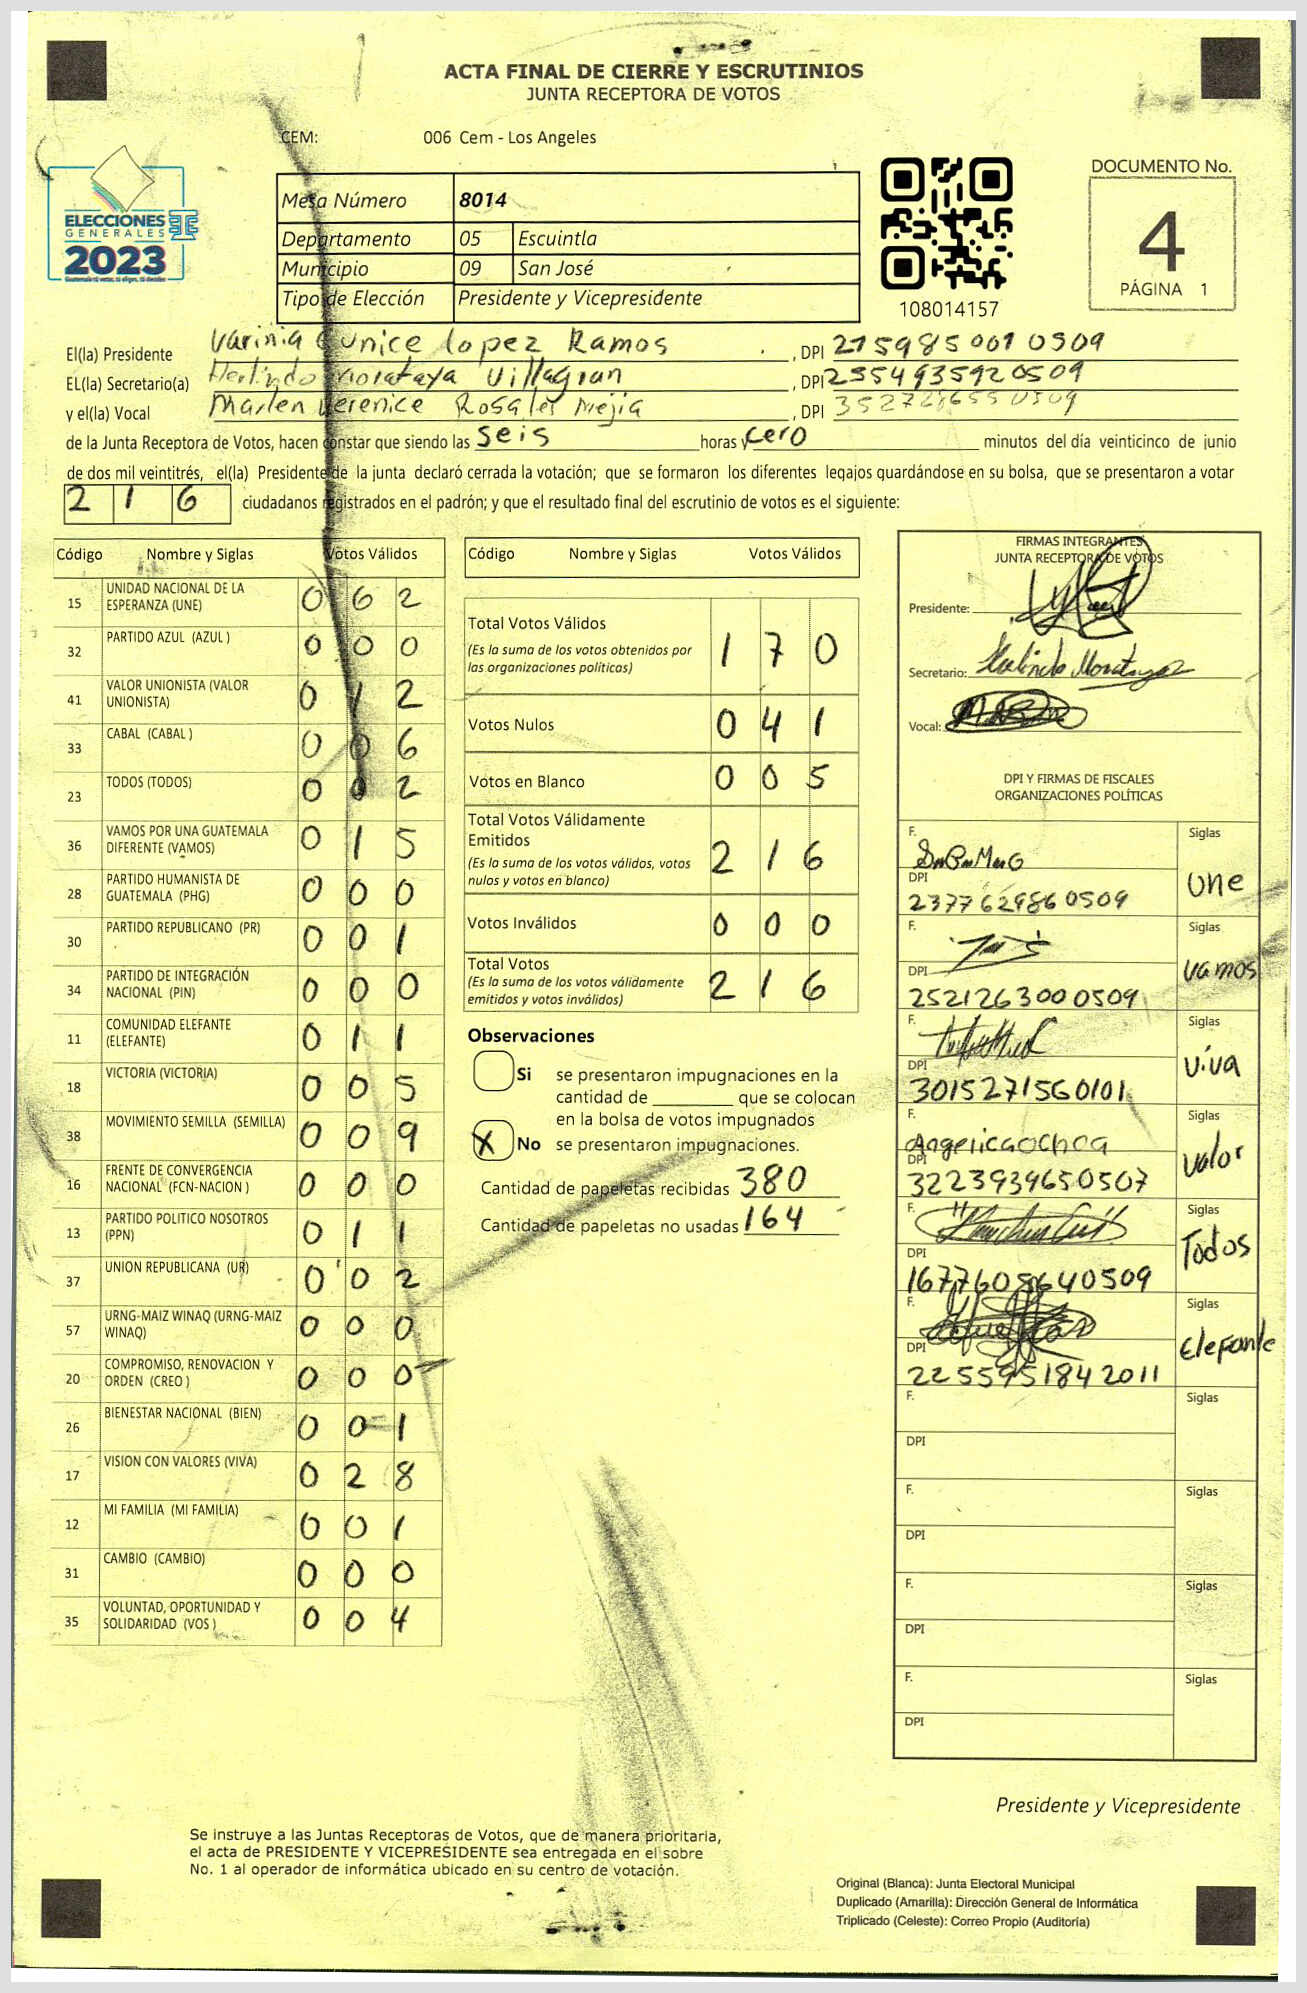 ACTA FINAL DE CIERRE Y ESCRUTINIOS
JUNTA RECEPTORA DE VOTOS
CEM: 006 Cem - Los Angeles
ELECCIONES
GENERALES
2023
Mesa Número 8014
Departamento 05 Escuintla
Municipio 09 San José
Tipo de Elección Presidente y Vicepresidente
108014157
DOCUMENTO No.
4
PÁGINA 1
El(la) Presidente Varinia Eunice lopez Ramos, DPI 215985001 0509
EL(la) Secretario(a) Herlindo Morataya Villagran, DPI 255493592 0509
y el(la) Vocal Marlen Verenice Rosales Mejia, DPI
de la Junta Receptora de Votos, hacen constar que siendo las seis horas y cero minutos del día veinticinco de junio
de dos mil veintitrés, el(la) Presidente de la junta declaró cerrada la votación; que se formaron los diferentes legajos quardándose en su bolsa, que se presentaron a votar
2 1 6 ciudadanos registrados en el padrón; y que el resultado final del escrutinio de votos es el siguiente:
Código Nombre y Siglas Votos Válidos
15 UNIDAD NACIONAL DE LA ESPERANZA (UNE) 0 6 2
32 PARTIDO AZUL (AZUL ) 0 0 0
41 VALOR UNIONISTA (VALOR UNIONISTA) 0 1 2
33 CABAL (CABAL ) 0 0 6
23 TODOS (TODOS) 0 0 2
36 VAMOS POR UNA GUATEMALA DIFERENTE (VAMOS) 0 1 5
28 PARTIDO HUMANISTA DE GUATEMALA (PHG) 0 0 0
30 PARTIDO REPUBLICANO (PR) 0 0 1
34 PARTIDO DE INTEGRACIÓN NACIONAL (PIN) 0 0 0
11 COMUNIDAD ELEFANTE (ELEFANTE) 0 1 1
18 VICTORIA (VICTORIA) 0 0 5
38 MOVIMIENTO SEMILLA (SEMILLA) 0 0 9
16 FRENTE DE CONVERGENCIA NACIONAL (FCN-NACION ) 0 0 0
13 PARTIDO POLITICO NOSOTROS (PPN) 0 1 1
37 UNION REPUBLICANA (UR) 0 0 2
57 URNG-MAIZ WINAQ (URNG-MAIZ WINAQ) 0 0 0
20 COMPROMISO, RENOVACION Y ORDEN (CREO ) 0 0 0
26 BIENESTAR NACIONAL (BIEN) 0 0 1
17 VISION CON VALORES (VIVA) 0 2 8
12 MI FAMILIA (MI FAMILIA) 0 0 1
31 CAMBIO (CAMBIO) 0 0 0
35 VOLUNTAD, OPORTUNIDAD Y SOLIDARIDAD (VOS ) 0 0 4
Código Nombre y Siglas Votos Válidos
Total Votos Válidos 1 7 0
(Es la suma de los votos obtenidos por
las organizaciones políticas)
Votos Nulos 0 4 1
Votos en Blanco 0 0 5
Total Votos Válidamente
Emitidos 2 1 6
(Es la suma de los votos válidos, votos
nulos y votos en blanco)
Votos Inválidos 0 0 0
Total Votos 2 1 6
(Es la suma de los votos válidamente
emitidos y votos inválidos)
Observaciones
Si se presentaron impugnaciones en la
cantidad de que se colocan
en la bolsa de votos impugnados
X No se presentaron impugnaciones.
Cantidad de papeletas recibidas 380
Cantidad de papeletas no usadas 164
FIRMAS INTEGRANTES
JUNTA RECEPTORA DE VOTOS
Presidente:
Secretario: Herlindo Morataya
Vocal:
DPI Y FIRMAS DE FISCALES
ORGANIZACIONES POLÍTICAS
F. Siglas
DPI une
2377629860509
F. Siglas
DPI vamos
2521263000509
F. Siglas
DPI viva
3015271560101
F. Siglas
Angelica Ochoa
DPI valor
3223939650507
F. Siglas
DPI Todos
1677605640509
F. Siglas
DPI Elefante
2255951842011
F. Siglas
DPI
F. Siglas
DPI
F. Siglas
DPI
F. Siglas
DPI
Presidente y Vicepresidente
Se instruye a las Juntas Receptoras de Votos, que de manera prioritaria,
el acta de PRESIDENTE Y VICEPRESIDENTE sea entregada en el sobre
No. 1 al operador de informática ubicado en su centro de votación.
Original (Blanca): Junta Electoral Municipal
Duplicado (Amarilla): Dirección General de Informática
Triplicado (Celeste): Correo Propio (Auditoría)